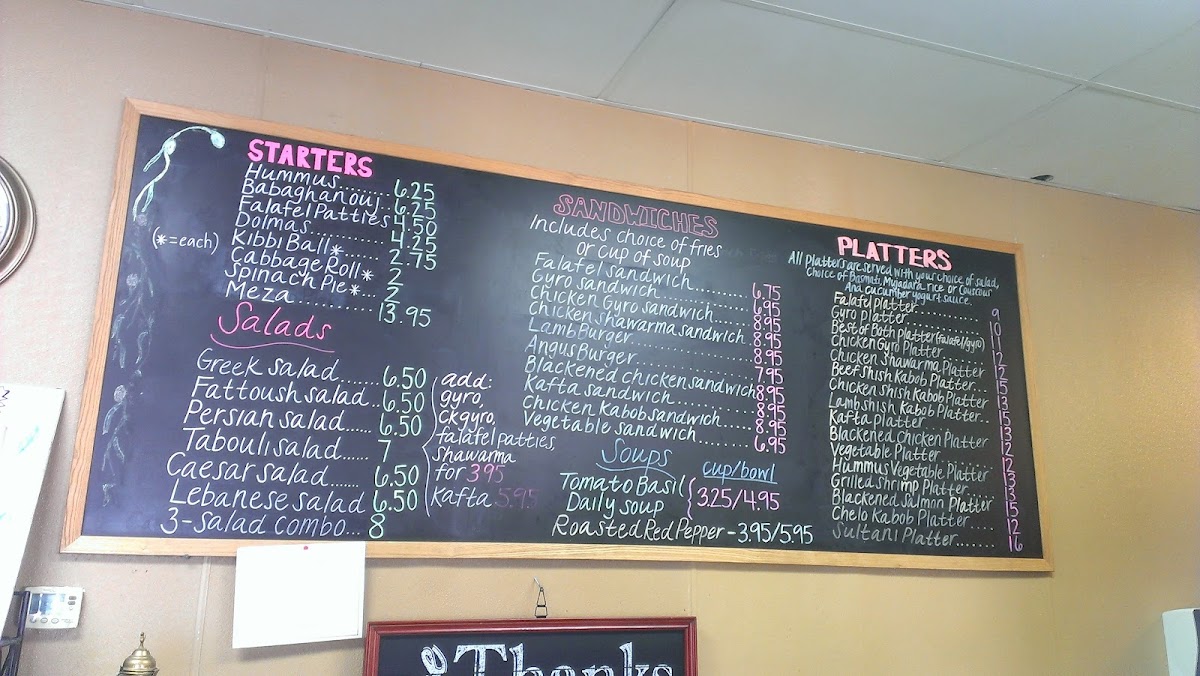 STARTERS
Hummus........ 6.25
Babaghanouj.. 6.25
Falafel Patties 4.50
Dolmas.......... 4.25
(*=each) Kibbi Ball*...... 2.75
Cabbage Roll* 2
Spinach Pie*... 2
Meza............ 13.95
Salads
Greek salad....... 6.50
Fattoush salad.. 6.50
Persian salad..... 6.50
Tabouli salad...... 7
Caesar salad....... 6.50
Lebanese salad 6.50
3-salad combo... 8
add:
gyro,
ckgyro,
falafel patties,
shawarma
for 3.95
kafta 5.95
SANDWICHES
Includes choice of fries
or cup of soup
Falafel sandwich......... 6.75
Gyro sandwich............. 6.95
Chicken Gyro sandwich...... 8.95
Chicken shawarma sandwich.. 8.95
Lamb Burger................ 8.95
Angus Burger............... 7.95
Blackened chicken sandwich 8.95
Kafta sandwich............. 8.95
Chicken kabob sandwich..... 8.95
Vegetable sandwich......... 6.95
Soups
cup/bowl
Tomato Basil
Daily soup 3.25/4.95
Roasted Red Pepper - 3.95/5.95
PLATTERS
All Platters are served with your choice of salad,
choice of Basmati, Mujadara rice or Couscous
And cucumber yogurt sauce.
Falafel platter............ 9
Gyro platter............... 10
Best of Both platter (falafel/gyro) 11
Chicken Gyro Platter....... 12
Chicken Shawarma Platter 12
Beef Shish Kabob Platter... 15
Chicken Shish Kabob Platter 13
Lamb shish Kabob Platter.. 15
Kafta platter.............. 13
Blackened Chicken Platter 12
Vegetable Platter.......... 12
Hummus Vegetable Platter 13
Grilled shrimp Platter..... 13
Blackened Salmon Platter 15
Chelo Kabob Platter........ 12
Sultani Platter....... 16
Thanks